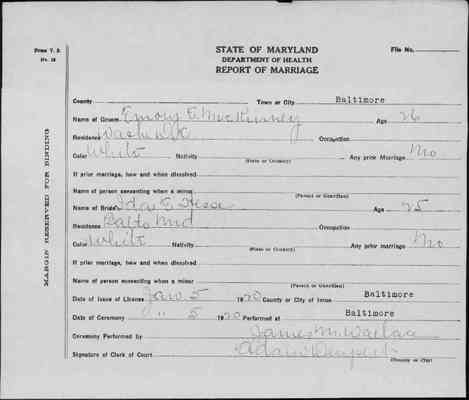 Form V. S.
No. 18
STATE OF MARYLAND
DEPARTMENT OF HEALTH
REPORT OF MARRIAGE
File No.
MARGIN RESERVED FOR BINDING
County Town or City Baltimore
Name of Groom Emory E. McKinney Age 26
Residence Wash. Occupation
Color White Nativity Any prior Marriage No
(State or Country)
If prior marriage, how and when dissolved
Name of person consenting when a minor
(Parent or Guardian)
Name of Bride Ida E. Age 25
Residence Balto Md Occupation
Color White Nativity Any prior marriage No
(State or Country)
If prior marriage, how and when dissolved
Name of person consenting when a minor
(Parent or Guardian)
Date of Issue of License Jan 5 1920 County or City of Issue Baltimore
Date of Ceremony " 5 1920 Performed at Baltimore
Ceremony Performed by James M.
Signature of Clerk of Court Adam Deupert
(County or City)